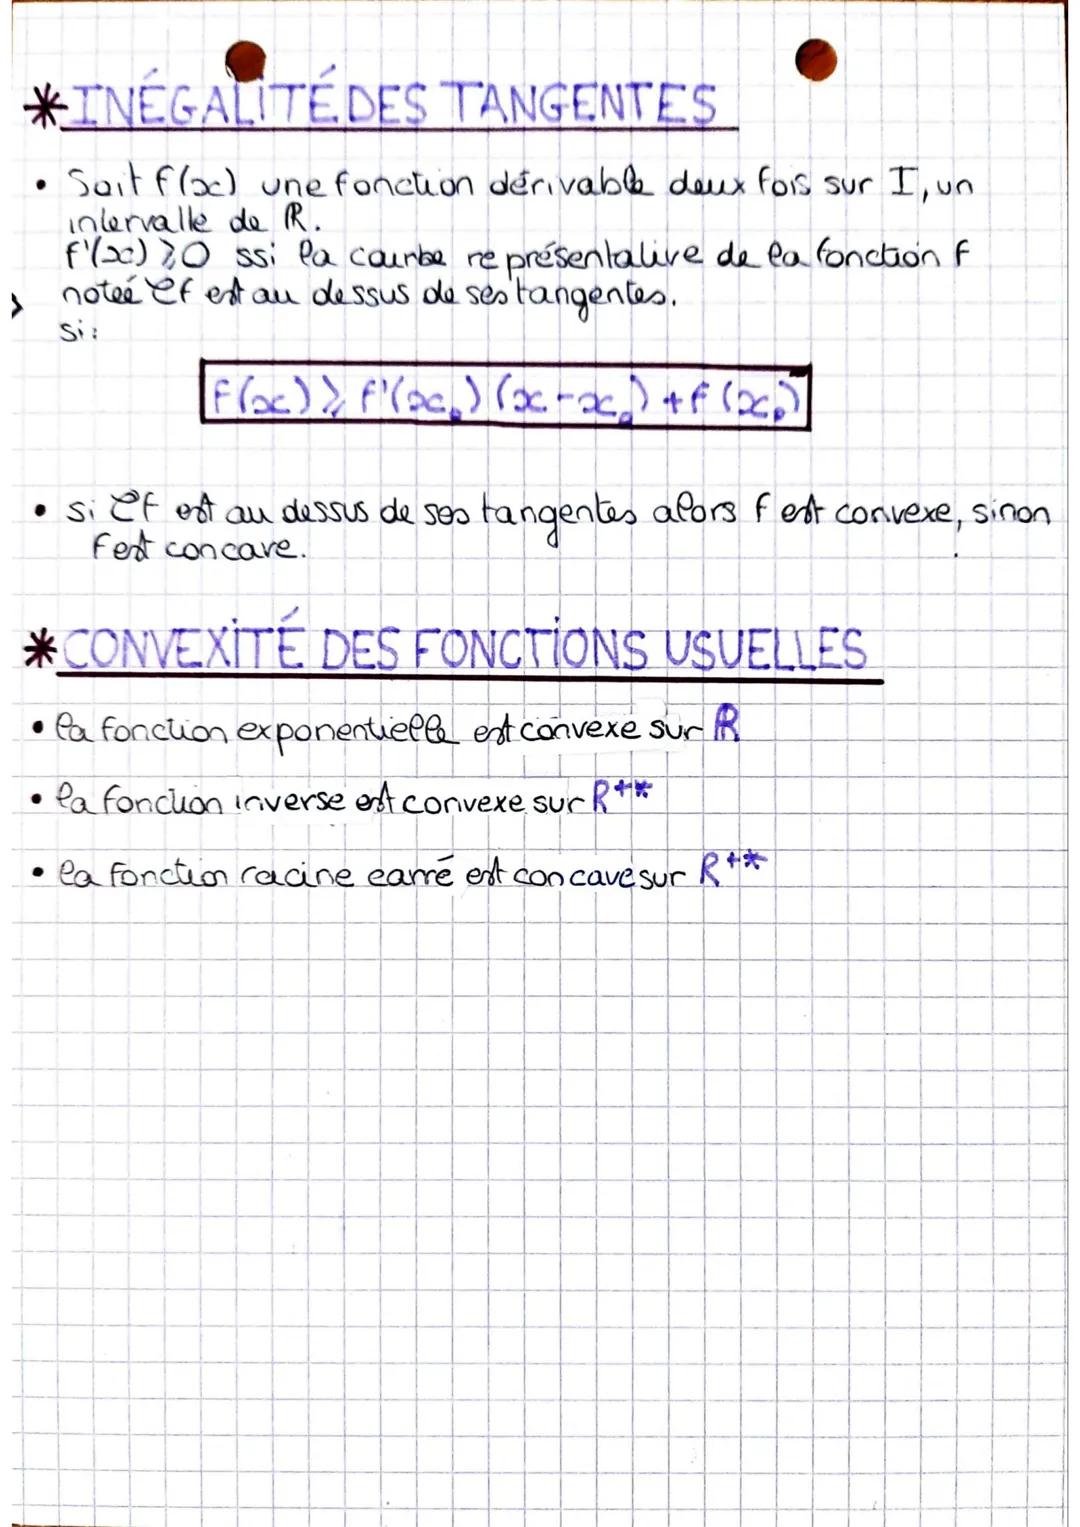 * INÉGALITÉ DES TANGENTES
• Soit f(x) une fonction dérivable deux fois sur I, un
intervalle de ℝ.
f'(x) ⩾ 0 ssi la courbe représentative de la fonction f
noteé Cf est au dessus de ses tangentes.
si:
f(x) ⩾ f'(x₀)(x-x₀)+f(x₀)
• si Cf est au dessus de ses tangentes alors f est convexe, sinon
f est concave.
* CONVEXITÉ DES FONCTIONS USUELLES
• la fonction exponentielle est convexe sur ℝ
• la fonction inverse est convexe sur R+*
• la fonction racine carré est concave sur R+*